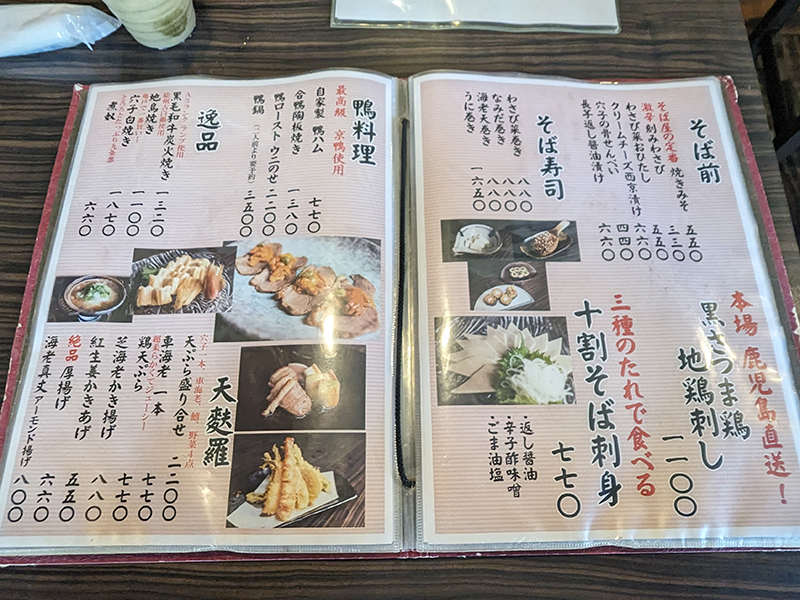 そば前
そば屋の定番 焼きみそ 五五〇
激辛 刻みわさび 三三〇
わさび菜おひたし 五五〇
クリームチーズ西京漬け 六六〇
穴子の骨せんべい 四四〇
長芋返し醤油漬け 六六〇
そば寿司
わさび菜巻き 八八〇
なみだ巻き 八八〇
海老天巻き
うに巻き 一六五〇
本場 鹿児島直送!
黒さつま鶏
地鶏刺し 一一〇〇
三種のたれで食べる
十割そば刺身 七七〇
・返し醤油
・辛子酢味噌
・ごま油塩
鴨料理
最高級 京鴨使用
自家製 鴨ハム 七七〇
合鴨陶板焼き 一三八〇
鴨ロースト ウニのせ 二二〇〇
鴨鍋 (二人前より要予約) 三五〇〇
逸品
A5ランク ラン使用
黒毛和牛炭火焼き 一三二〇
地鳥焼き 一一〇〇
穴子白焼き 一八七〇
煮奴 六六〇
天麩羅
穴子一本、車海老、鱚、野菜4点
天ぷら盛り合せ 二二〇〇
車海老 一本
鶏天ぷら 七七〇
芝海老かき揚げ 七七〇
紅生姜かきあげ 八八〇
絶品 厚揚げ 五五〇
海老真丈アーモンド揚げ 八〇〇